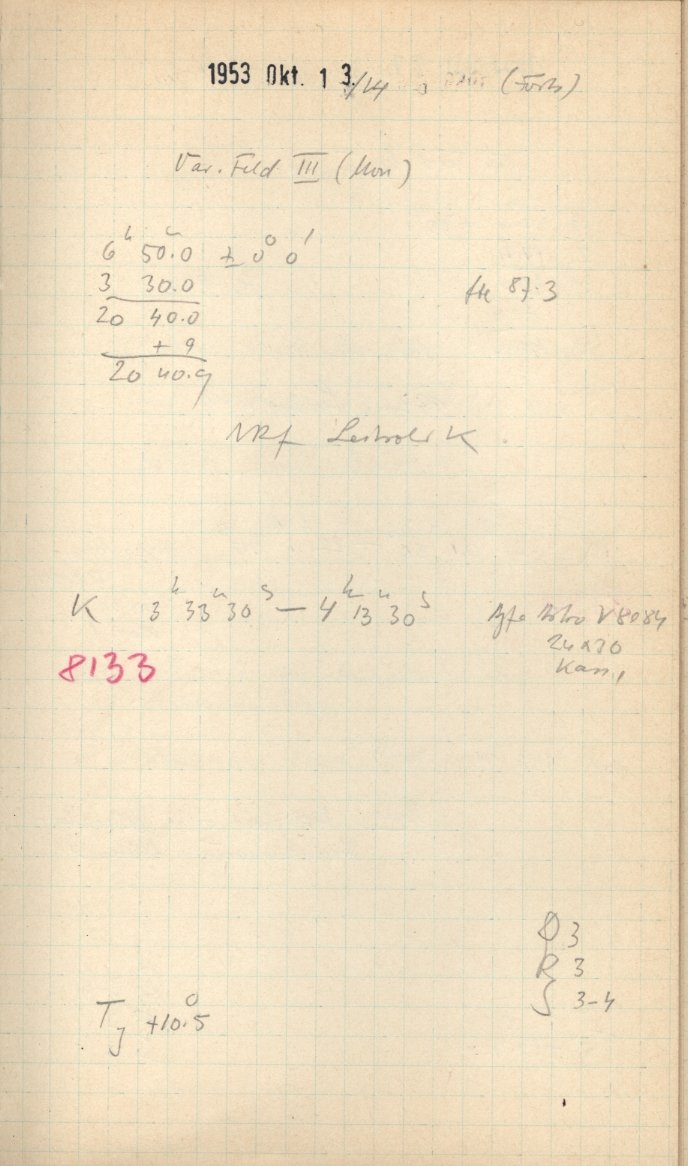 1953 Okt. 13./14 (Forts)
Var. Feld III (Mon)
6ʰ 50.0 ± 0° 0'
3 30.0
20 40.0
+ 9
20 40.9
87.3
K 3ʰ 33ᵐ 30ˢ — 4ʰ 13ᵐ 30ˢ
Agfa Astro V 8084
24x30
Kass.
8133
D 3
R 3
S 3-4
T +10.5°